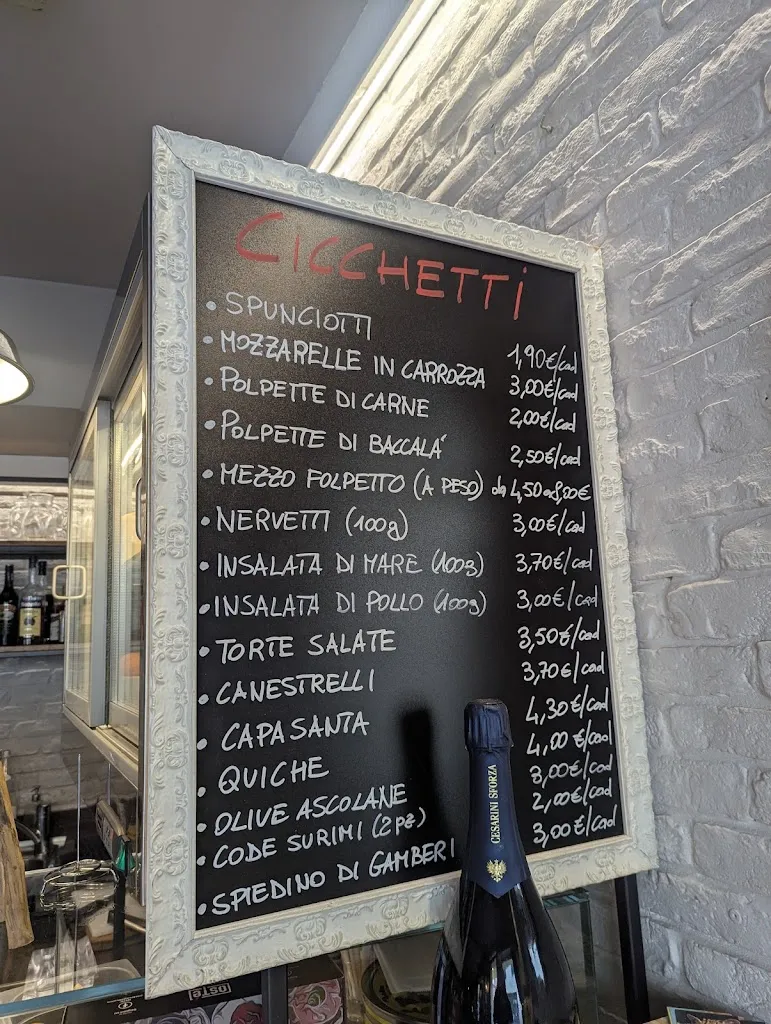 CICCHETTI
• SPUNCIOTTI 1,90€/cad
• MOZZARELLE IN CARROZZA 3,00€/cad
• POLPETTE DI CARNE 2,00€/cad
• POLPETTE DI BACCALA' 2,50€/cad
• MEZZO FOLPETTO (A PESO) da 4,50 a 8,00€
• NERVETTI (100g) 3,00€/cad
• INSALATA DI MARE (100g) 3,70€/cad
• INSALATA DI POLLO (100g) 3,00€/cad
• TORTE SALATE 3,50€/cad
• CANESTRELLI 3,70€/cad
• CAPASANTA 4,30€/cad
• QUICHE 4,00€/cad
• OLIVE ASCOLANE 3,00€/cad
• CODE SURIMI (2pz) 2,00€/cad
• SPIEDINO DI GAMBERI 3,00€/cad
CESARINI SFORZA
OSTE